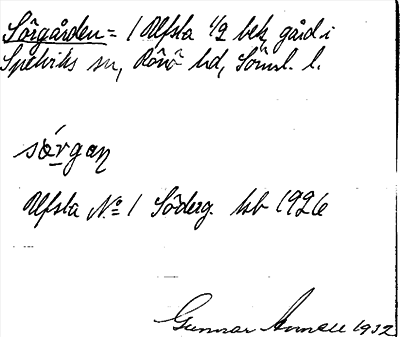 Sörgården = 1 Ulfsta 1/2 bek gård i
Spelviks sn, Rönö hd, Söml. l.
sǿrgaɳ
Ulfsta No 1 Söderg. hb 1926
Gunnar Annell 1932